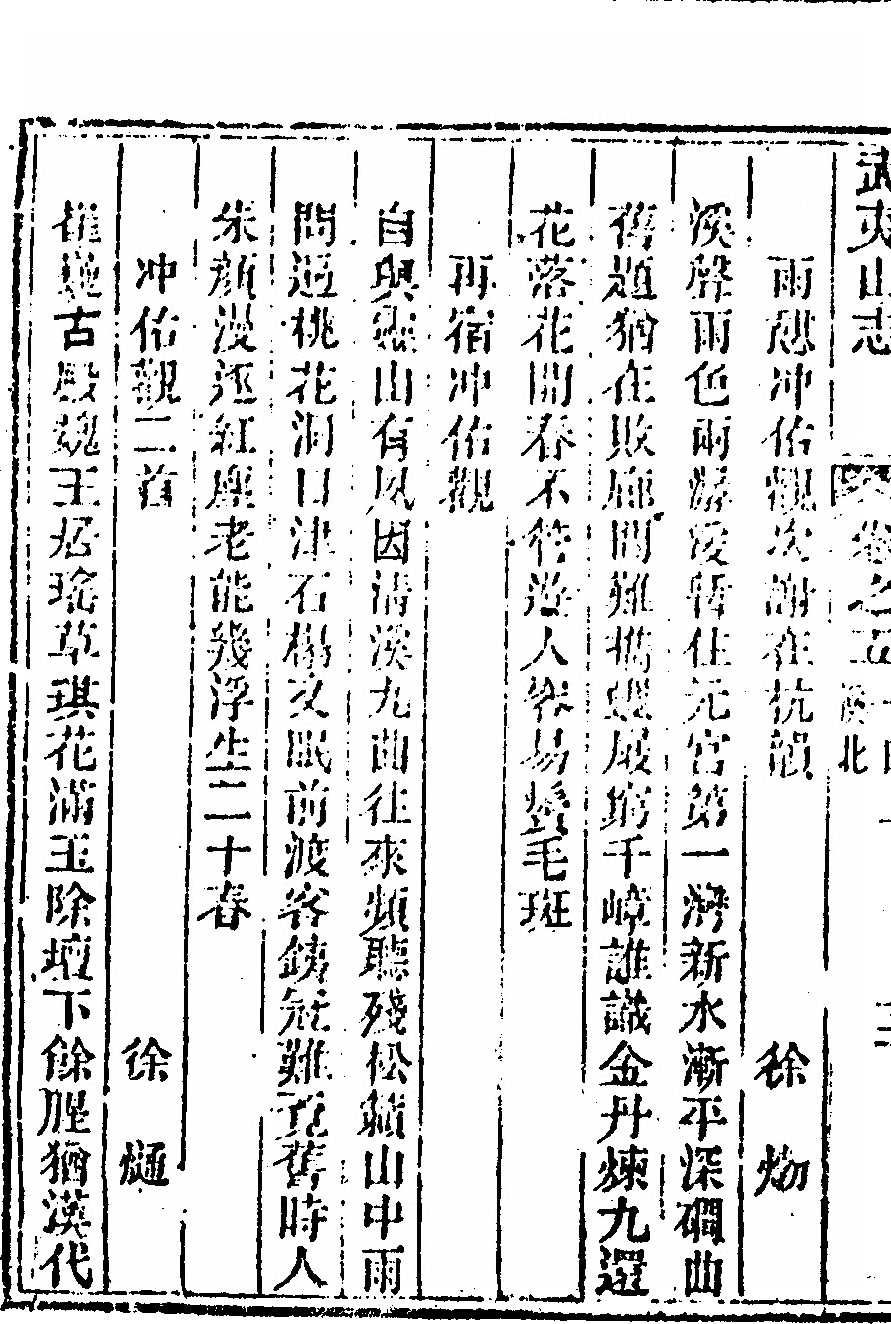 武夷山志 卷之五 溪北
雨憩冲佑觀次謝在杭韻 徐𤊹
溪聲雨色兩潺湲暫住元宮第一灣新水漸平深磵曲
舊題猶在敗廊間難攜幾屐窮千嶂誰識金丹煉九還
花落花開春不管遊人容易鬢毛斑
再宿冲佑觀
自與靈山有夙因清溪九曲往來頻聽殘松籟山中雨
問過桃花洞口津石榻又眠前渡客鐵冠難覓舊時人
朱顏漫逐紅塵老能幾浮生二十春
冲佑觀二首 徐熥
崔巍古殿魏王居瑤草琪花滿玉除壇下餘腥猶漢代